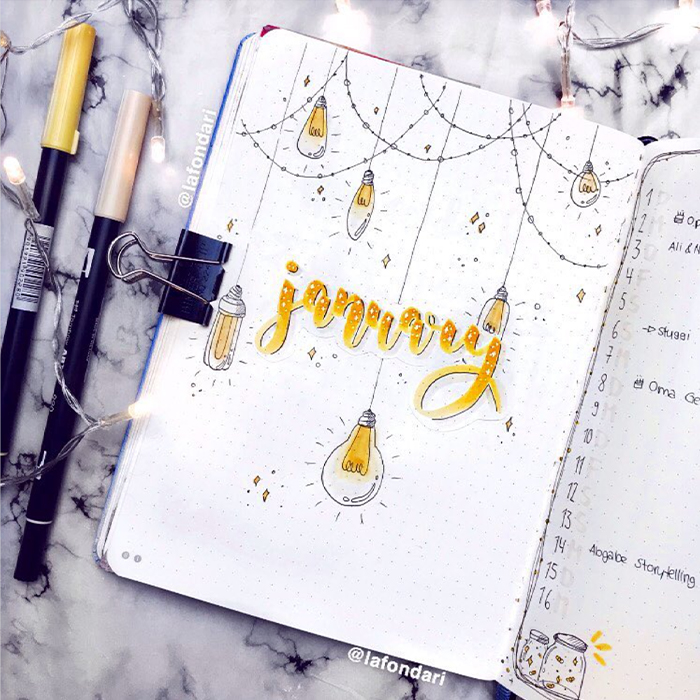 @lafondari
january
1
2
3
Ali & N
4
5
6 → Stuggi
7
8 Oma Ge
9
10
11
12
13
14 Abgabe Storytelling
15
16
@lafondari